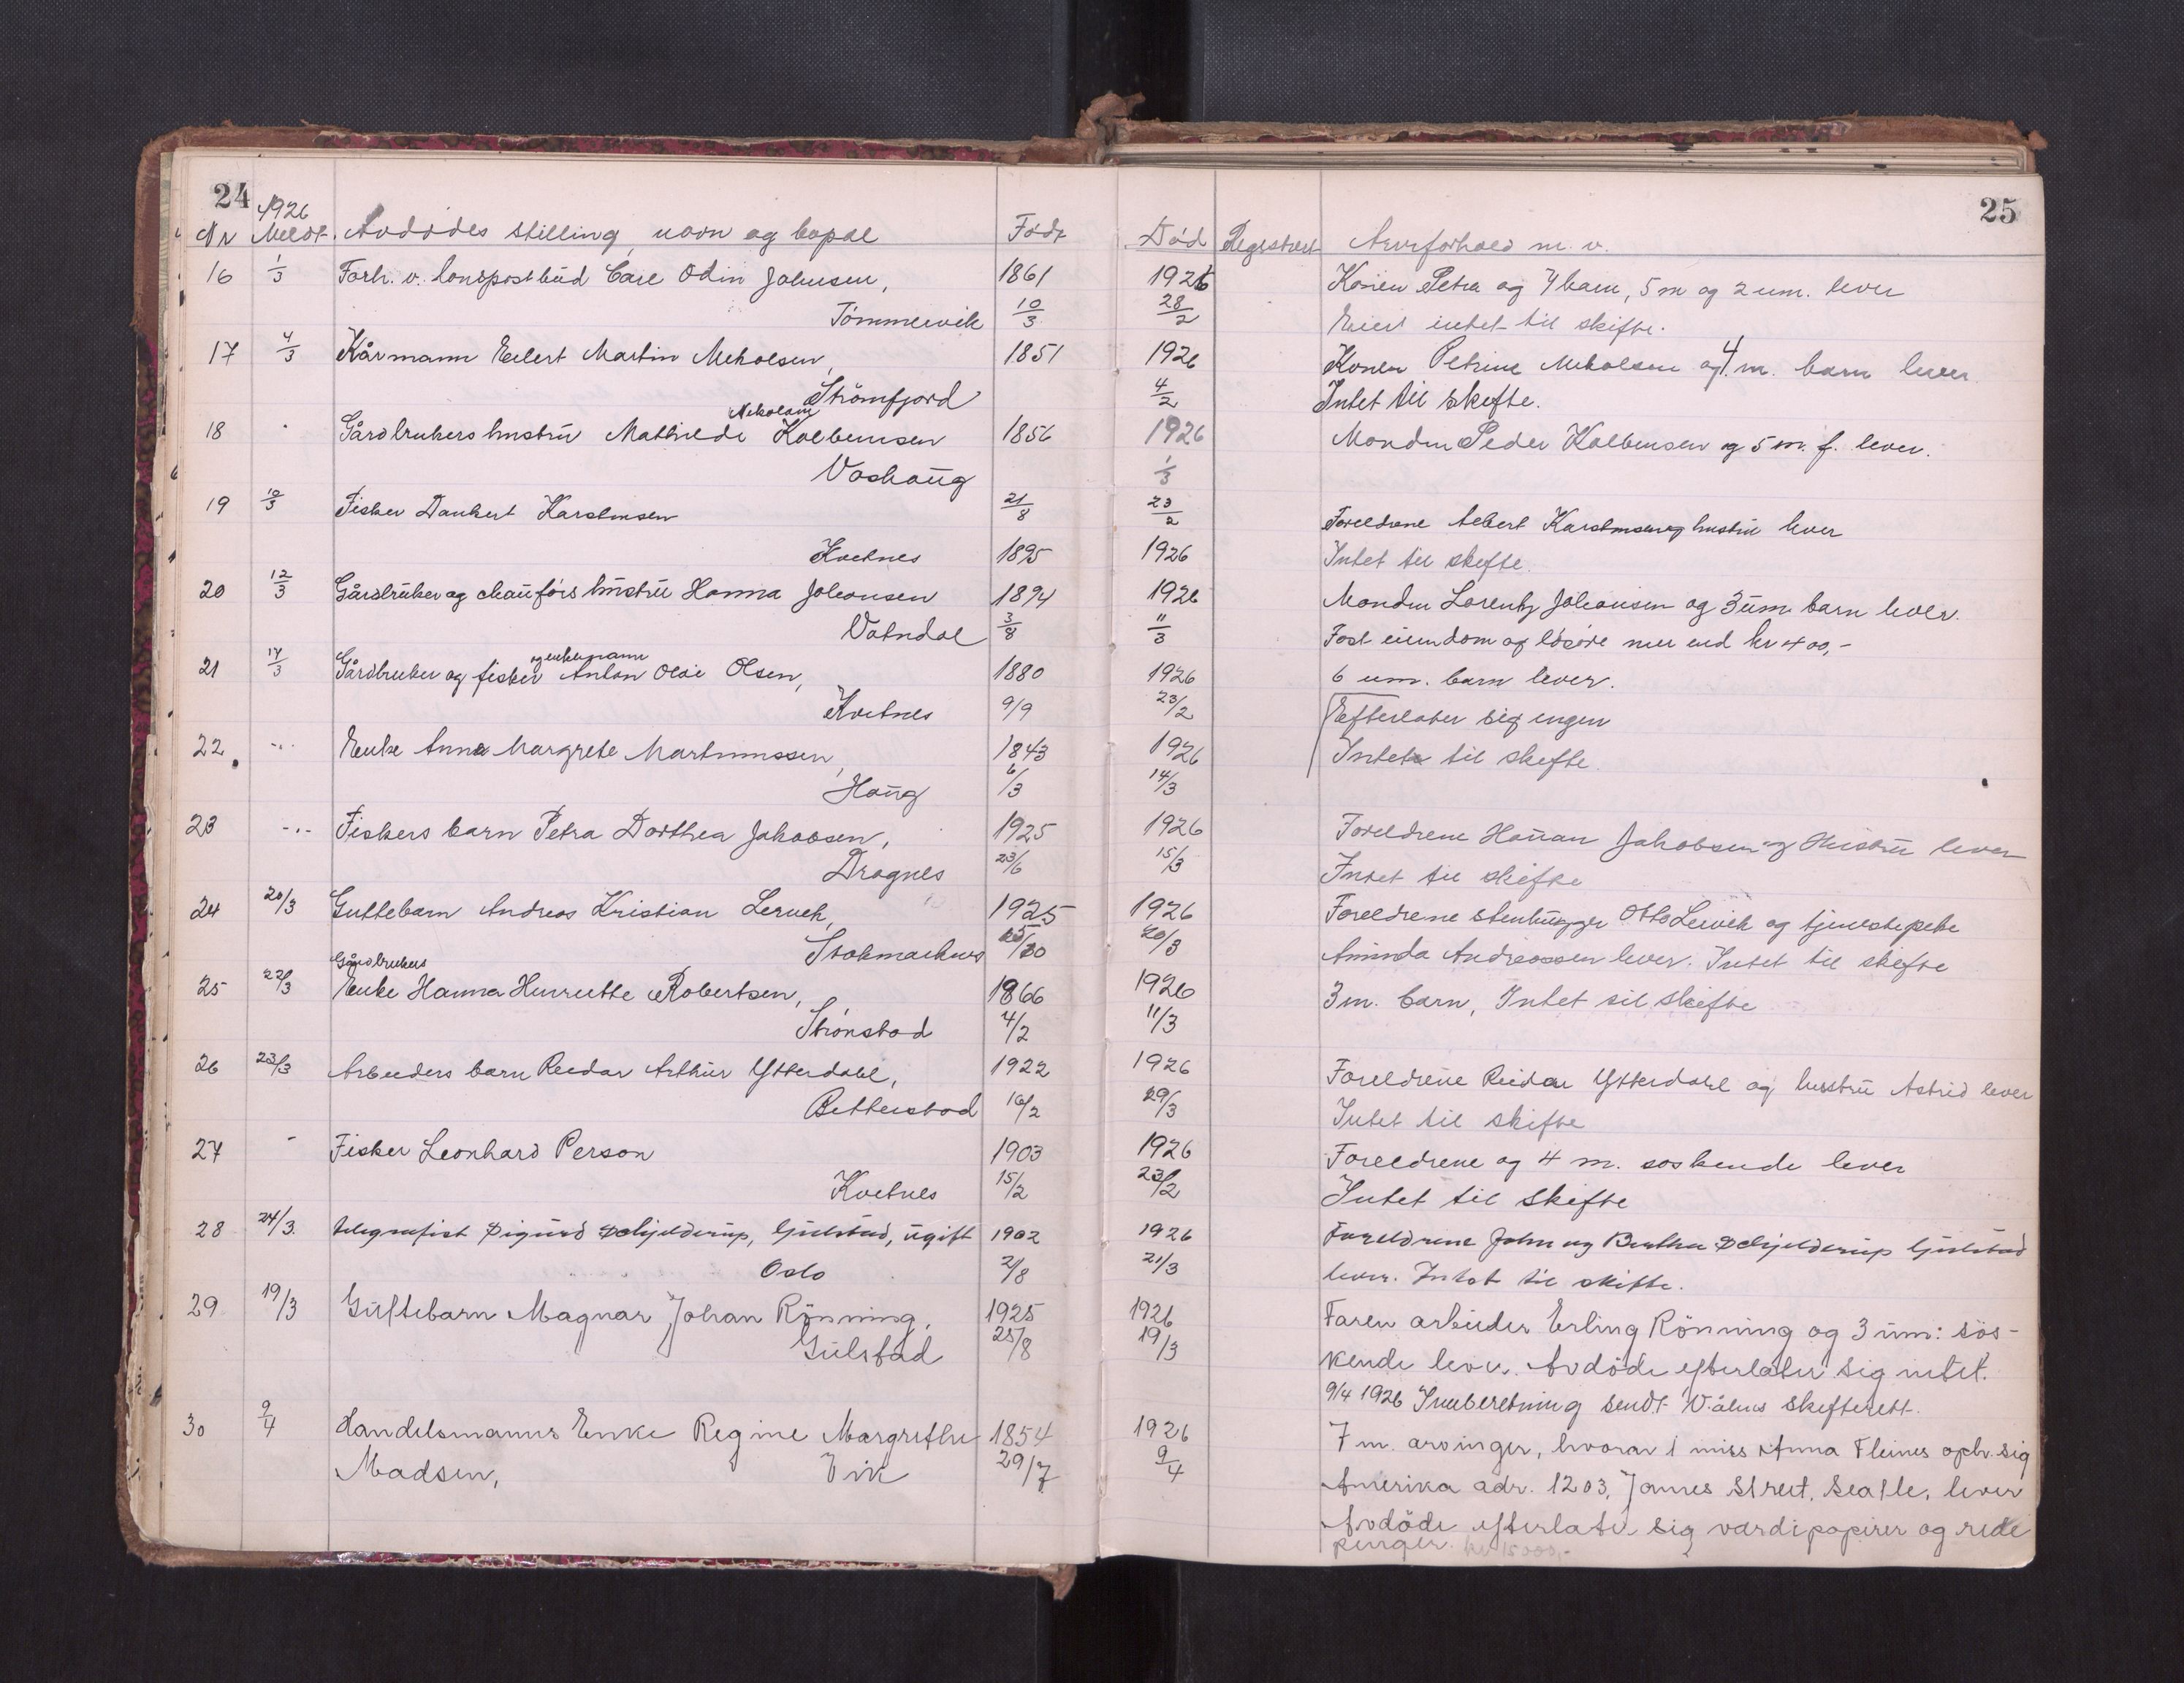 24
25
1926
Nr Meldt. Avdødes stilling, navn og bopæl Født Død Registrert Arveforhold m. v.
16 1/3 Forh. v. landpostbud Carl Odin Johnsen, 1861 1926 Konen Petra og 7 barn, 5 m og 2 um. lever
Tömmervik 10/3 28/2 Eiert intet til skifte.
17 4/3 Kårmann Eilert Martin Nikolsen, 1851 1926 Konen Petrine Nikolsen og 4 m. barn lever
Strömfjord 4/2 Intet til skifte.
Nikolam
18 Gårdbrukers hustru Mathilde Kolbensen 1856 1926 Manden Peder Kolbensen og 5 m. f. lever.
Vashaug 1/3
19 10/3 Fisker Dankert Karstensen 21/8 23/2 Foreldrene Albert Karstensen og hustru lever
Kvitnes 1895 1926 Intet til skifte.
20 12/3 Gårdbruker og chauførs hustru Hanna Johansen 1894 1926 Manden Lorentz Johansen og 3 um. barn lever.
Vatndal 3/8 11/3 Fast eiendom og løsøre mer end kr 400,-
og enkemann
21 17/3 Gårdbruker og fisker Anton Olai Olsen, 1880 1926 6 um. barn lever.
Kvitnes 9/9 23/2 Efterlater sig ingen
22 -"- Enke Anna Margrete Martinussen, 1843 1926 Intet til skifte.
Haug 6/3 14/3
23 -"- Fiskers barn Petra Dorthea Jakobsen, 1925 1926 Foreldrene Hauan Jakobsen og Hustru lever
Dragnes 23/6 15/3 Intet til skifte
24 20/3 Guttebarn Andreas Kristian Lervik, 1925 1926 Foreldrene stenhugger Otto Lervik og tjenestepike
Stokmarknes 25/10 20/3 Aminda Andreassen lever. Intet til skifte
Gårdbrukers
25 22/3 Enke Hanna Henriette Robertsen, 1866 1926 3 m. barn, Intet til skifte
Strønstad 4/2 11/3
26 23/3 Arbeiders barn Reidar Arthur Ytterdahl, 1922 1926 Foreldrene Reidar Ytterdahl og hustru Astrid lever
Bitterstad 16/2 29/3 Intet til skifte
27 - Fisker Leonhard Person 1903 1926 Foreldrene og 4 m. søskende lever
Kvitnes 15/2 23/2 Intet til skifte
28 24/3. telegrafist Sigurd Schjelderup, Gulstad, ugift 1902 1926 Foreldrene John og Berthe Schjelderup Gulstad
Oslo 2/8 21/3 lever. Intet til skifte.
29 19/3 Guttebarn Magnar Johan Rönning, 1925 1926 Faren arbeider Erling Rönning og 3 um: sös-
Gulstad 25/8 19/3 kende lever. Avdöde efterlater sig intet.
9/4 1926 Innberetning sendt V.ålens skifterett.
30 9/4 Handelsmanns Enke Regine Margrethe 1854 1926 7 m. arvinger, hvorav 1 miss Anna Fleines oph. sig
Madsen, Vik 29/7 9/4 Amerika adr. 1203, James Street, Seatle, lever
Avdöde efterlater sig værdipapirer og rede
penger. kr 15000,-